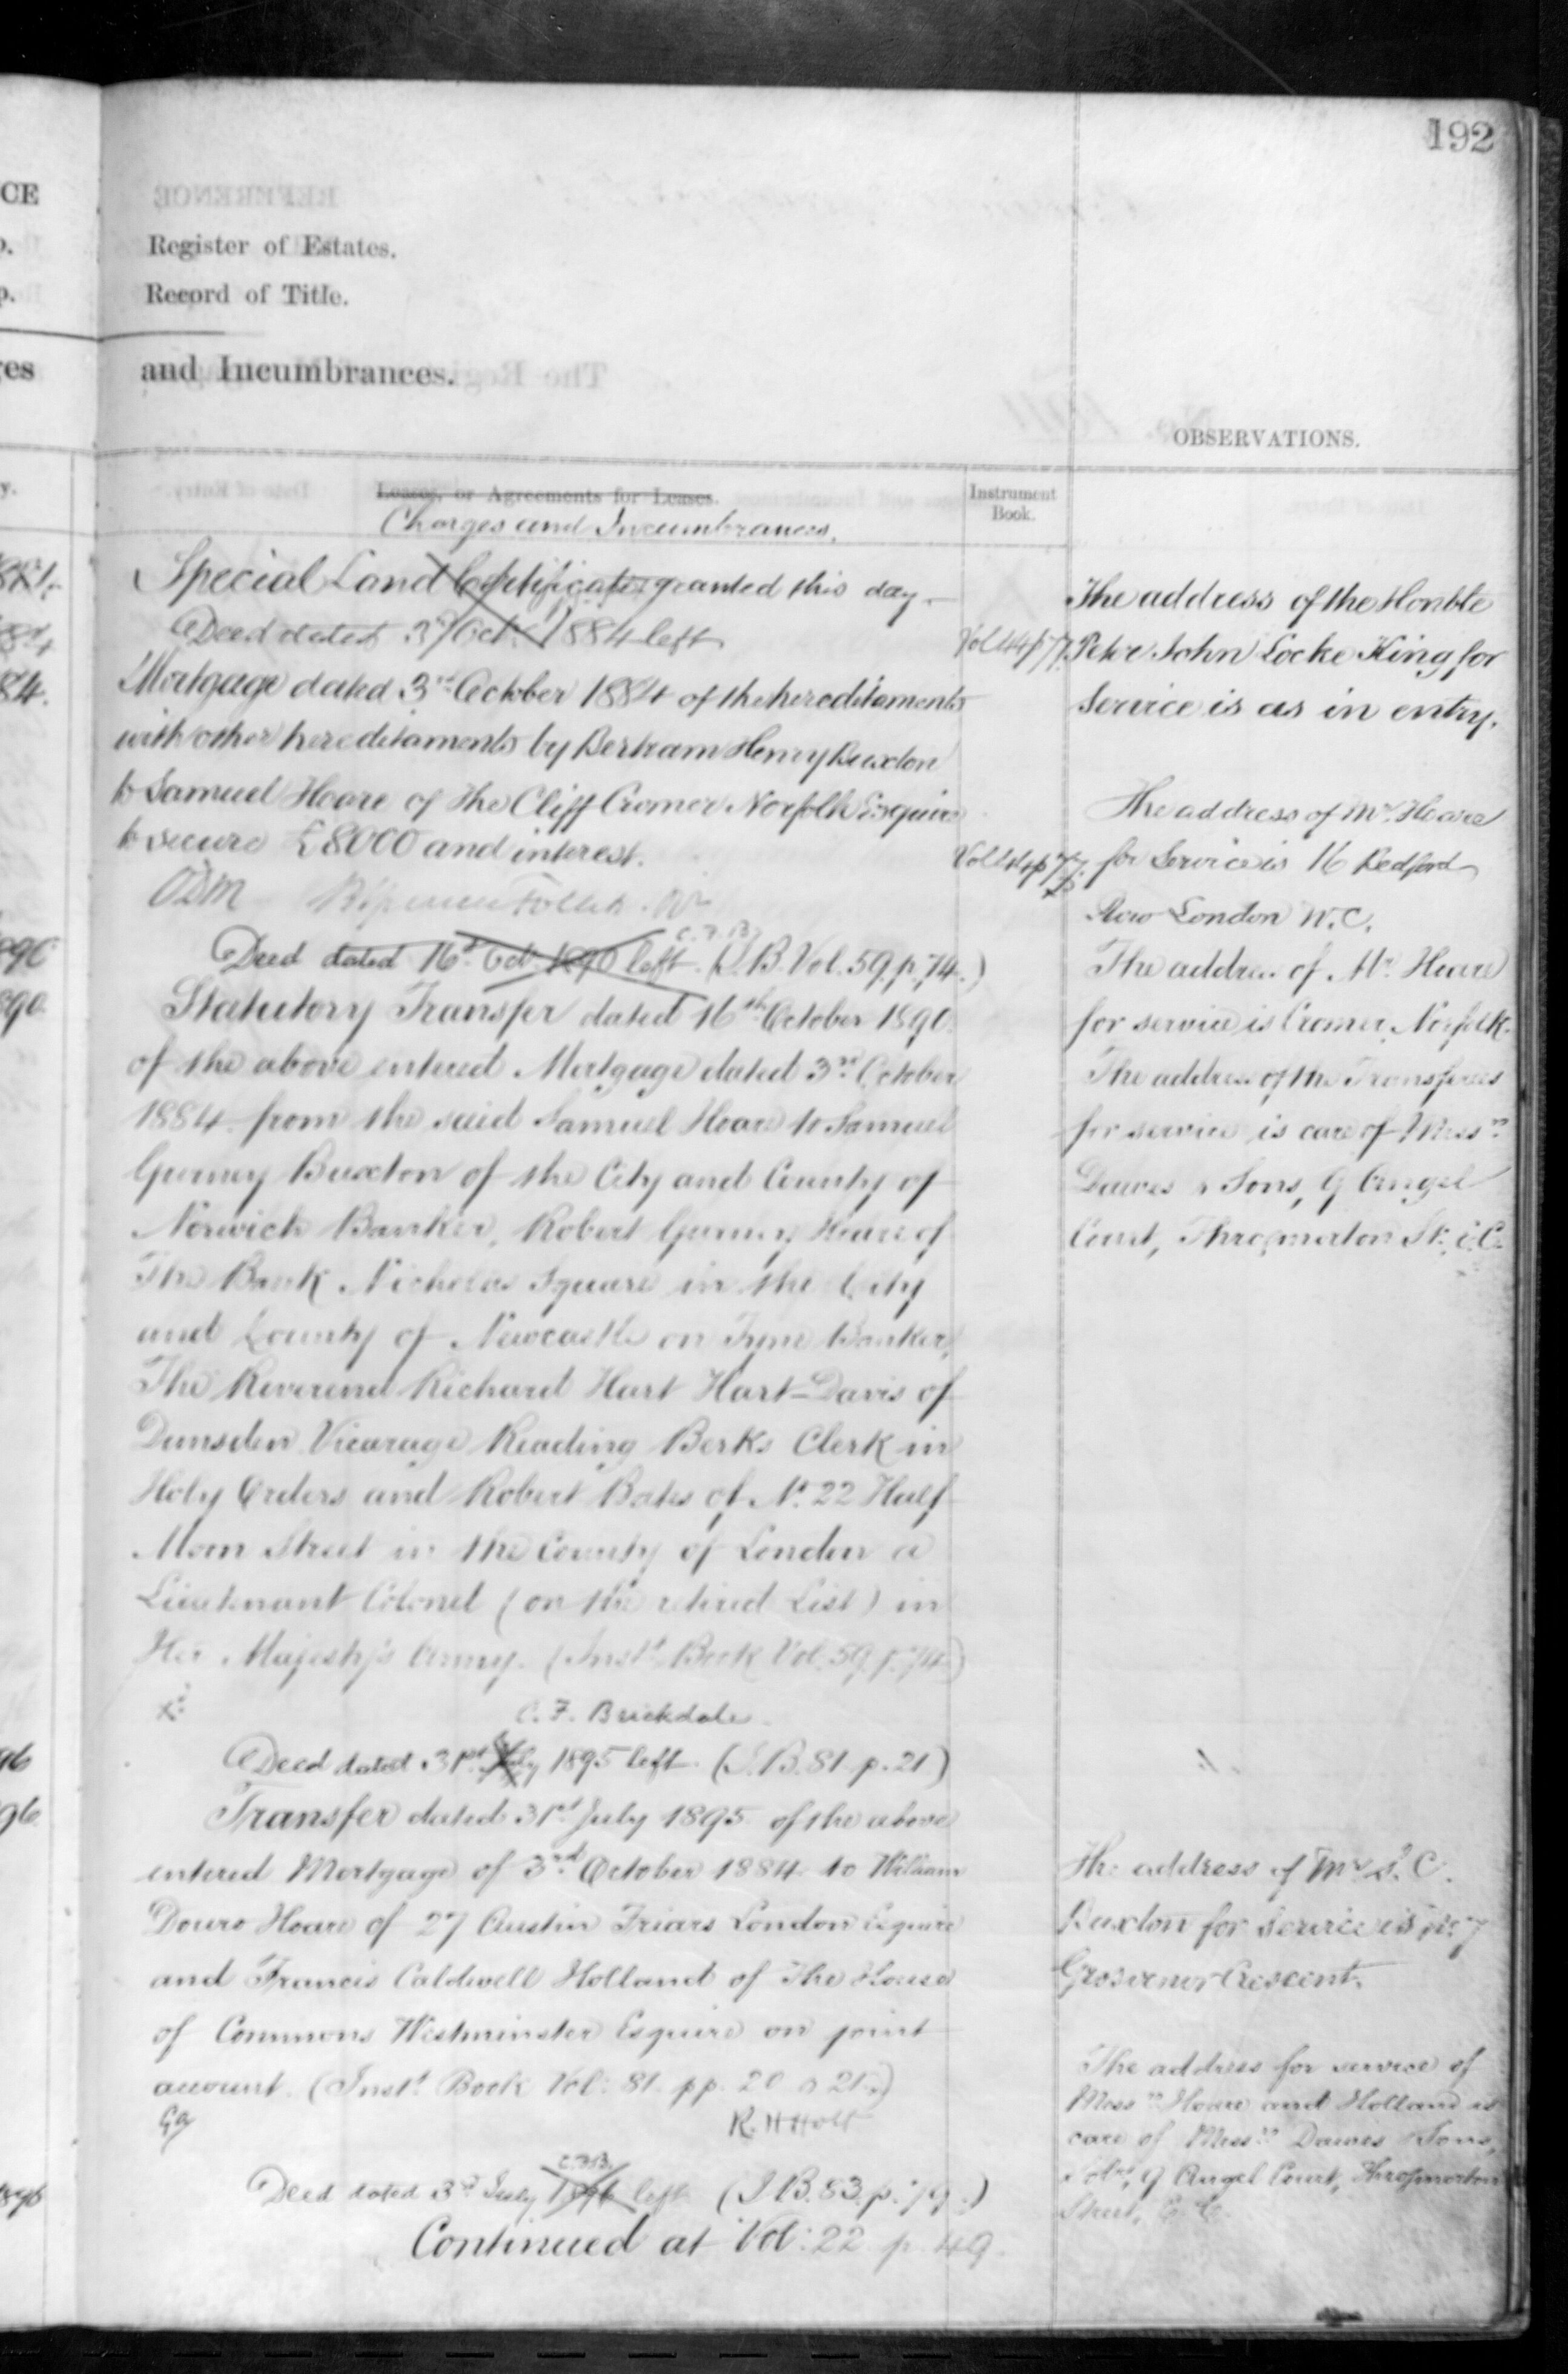 192
CE
Register of Estates.
Record of Title.
and Incumbrances.
OBSERVATIONS.
Leases, or Agreements for Leases.
Charges and Incumbrances.
Instrument
Book.
Special Land Certificate granted this day.
Deed dated 3rd Oct. 1884 left
Mortgage dated 3rd October 1884 of the hereditaments
with other hereditaments by Bertram Henry Buxton
to Samuel Hoare of The Cliff Cromer Norfolk Esquire
to secure £8000 and interest.
Vol 44 p 77.
Vol 44 p 77.
C.F.B.
Deed dated 16th Oct. 1890 left. (I.B. Vol. 59. p. 74.)
Statutory Transfer dated 16th October 1890
of the above entered Mortgage dated 3rd October
1884 from the said Samuel Hoare to Samuel
Gurney Buxton of the City and County of
Norwich Banker, Robert Gurney Hoare of
The Bank Nicholas Square in the City
and County of Newcastle on Tyne Banker,
The Reverend Richard Hart Hart-Davis of
Dunsden Vicarage Reading Berks Clerk in
Holy Orders and Robert Bates of No. 22 Half
Moon Street in the County of London a
Lieutenant Colonel (on the retired List) in
Her Majesty's Army. (Inst. Book Vol. 59. p. 74.)
C. F. Brickdale
Deed dated 31st July 1895 left. (I.B. 81. p. 21)
Transfer dated 31st July 1895 of the above
entered Mortgage of 3rd October 1884 to William
Douro Hoare of 27 Austin Friars London Esquire
and Francis Caldwell Holland of The House
of Commons Westminster Esquire on joint
account. (Inst. Book Vol: 81. pp. 20 & 21.)
R. H Holt
C.F.B.
Deed dated 3rd July 1896 left (I.B. 83. p. 79.)
Continued at Vol: 22 p. 49.
The address of the Honble
Peter John Locke King for
Service is as in entry.
The address of Mr. Hoare
for Service is 16 Bedford
Row London W.C.
The address of Mr. Hoare
for service is Cromer, Norfolk.
The address of the Transferees
for service is care of Messrs
Dawes & Sons, 9 Angel
Court, Throgmorton St. E.C.
The address of Mr S. C.
Buxton for Service is No. 7
Grosvenor Crescent.
The address for service of
Messrs Hoare and Holland is
care of Messrs Dawes & Sons,
Solrs, 9 Angel Court, Throgmorton
Street, E.C.